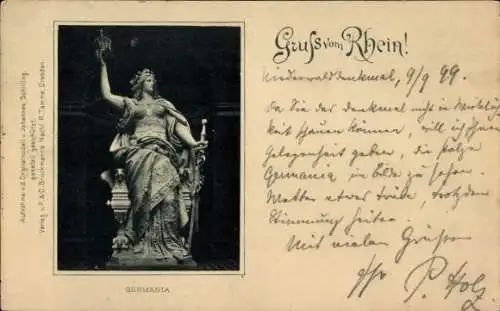 Gruss vom Rhein!
Niederwalddenkmal, 9/9 99.
Da Sie das Denkmal nicht in Wirklich
keit schauen können, will ich Ihnen
Gelegenheit geben, die stolze
Germania im Bilde zu sehen.
Wetter etwas trübe, trotzdem
Stimmung heiter.
Mit vielen Grüßen
Ihr P. Holz
GERMANIA
Aufnahme n. d. Originalmodell v. Johannes Schilling
gesetzl. geschützt.
Verlag v. F. & O. Brockmann's Nachf. R. Tamme, Dresden.